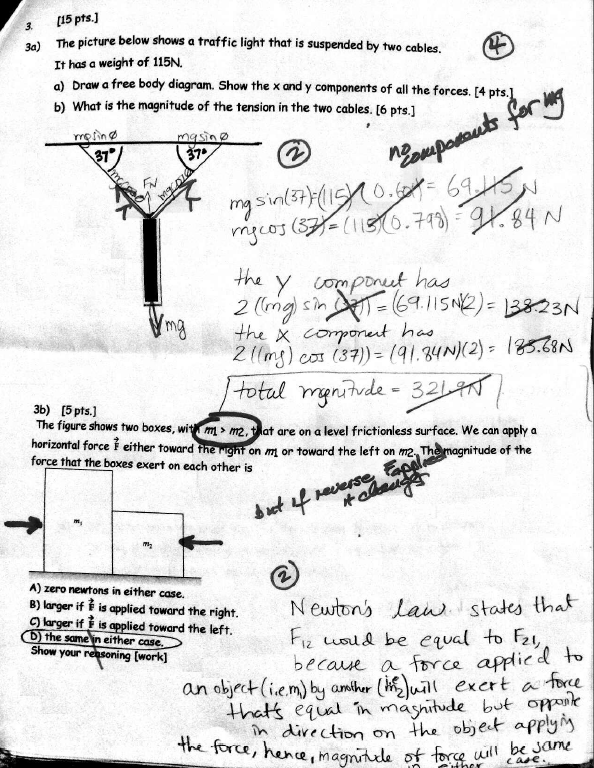 3. [15 pts.]
3a) The picture below shows a traffic light that is suspended by two cables.
④
It has a weight of 115N.
a) Draw a free body diagram. Show the x and y components of all the forces. [4 pts.]
b) What is the magnitude of the tension in the two cables. [6 pts.]
no components for mg
②
mgsinø mgsinø
37° 37°
mgcosø FN mgcosø
mg
mgsin(37)=(115)(0.601)= 69.115 N
mgcos(37)=(115)(0.798)= 91.84 N
the y component has
2((mg) sin (37))=(69.115N)(2)= 138.23N
the x component has
2((mg) cos (37))= (91.84N)(2)= 183.68N
total magnitude = 321.9N
3b) [5 pts.]
The figure shows two boxes, with m1 > m2, that are on a level frictionless surface. We can apply a
horizontal force F⃗ either toward the right on m1 or toward the left on m2. The magnitude of the
force that the boxes exert on each other is
but if reverse F applied
it changes
m1
m2
②
A) zero newtons in either case.
B) larger if F⃗ is applied toward the right.
C) larger if F⃗ is applied toward the left.
D) the same in either case.
Show your reasoning [work]
Newton's law states that
F12 would be equal to F21,
because a force applied to
an object (i.e m1) by another (i.e m2) will exert a force
that's equal in magnitude but opposite
in direction on the object applying
the force, hence, magnitude of force will be same
in either case.